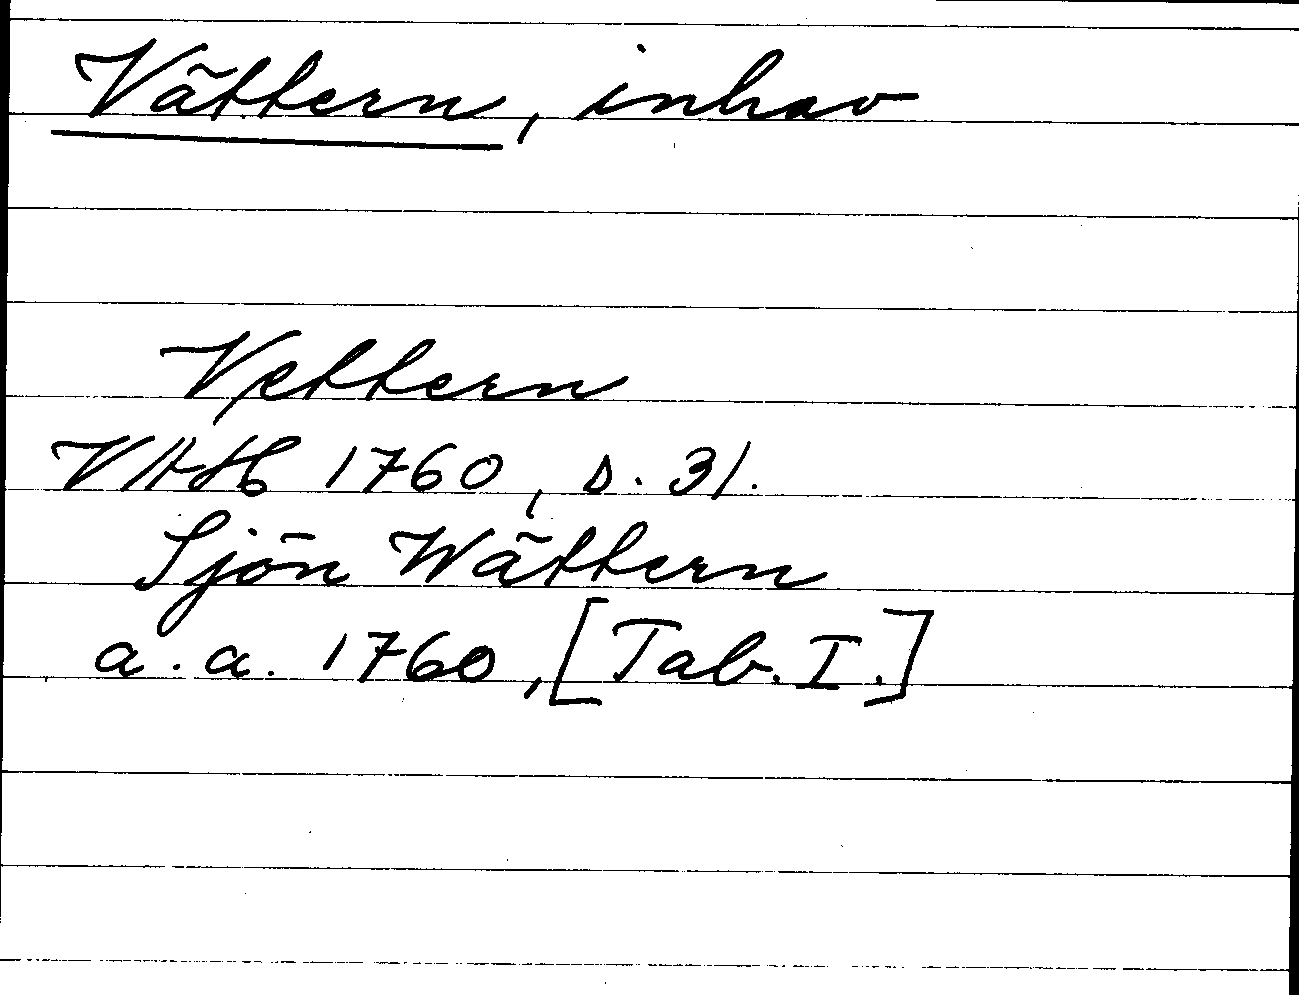 Vättern, inhav
Vettern
VAH 1760, s. 31.
Sjön Wättern
a.a. 1760, [Tab. I.]